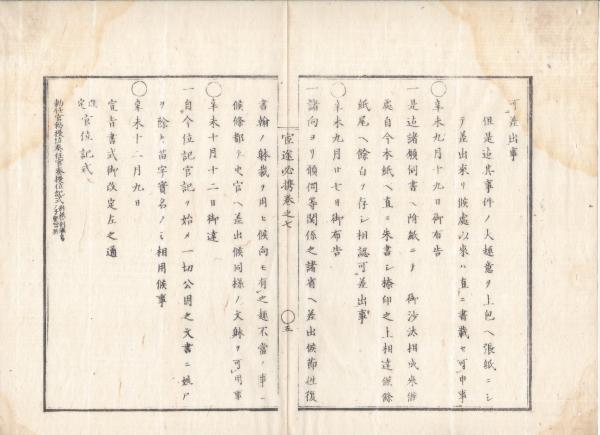 可差出事
但是迄其事件ノ大趣意ヲ上包ヘ張紙ニシ
テ差出來リ候處以來ハ直ニ書載セ可申事
○辛未九月十九日御布告
一是迄諸願伺書ヘ附紙ニテ御沙汰相成來候
處自今本紙ヘ直ニ朱書シ捺印之上相達候條
紙尾ヘ餘白ヲ存シ相認可差出事
○辛未九月廿七日御布告
一諸向ヨリ願伺等關係之諸省ヘ差出候節往復
官途必携卷之七
○五
書翰ノ躰裁ヲ用ヒ候向モ有之趣不當ノ事ニ
候條都テ史官ヘ差出候同樣ノ文躰ヲ可用事
○辛未十月十二日御達
一自今位記官記ヲ始メ一切公用之文書ニ姓尸
ヲ除キ苗字實名ノミ相用候事
○辛未十二月九日
宣旨書式御改定左之通
改定官位記式
勅任官勅授位奏任官奏授位記式